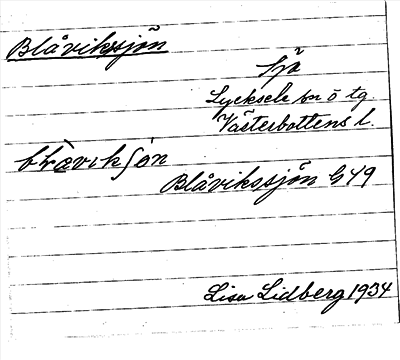 Blåvikssjön
Sjö
Lycksele sn o tg.
Västerbottens l.
blåvikʃön
Blåvikssjön G49
Lisa Lidberg 1934